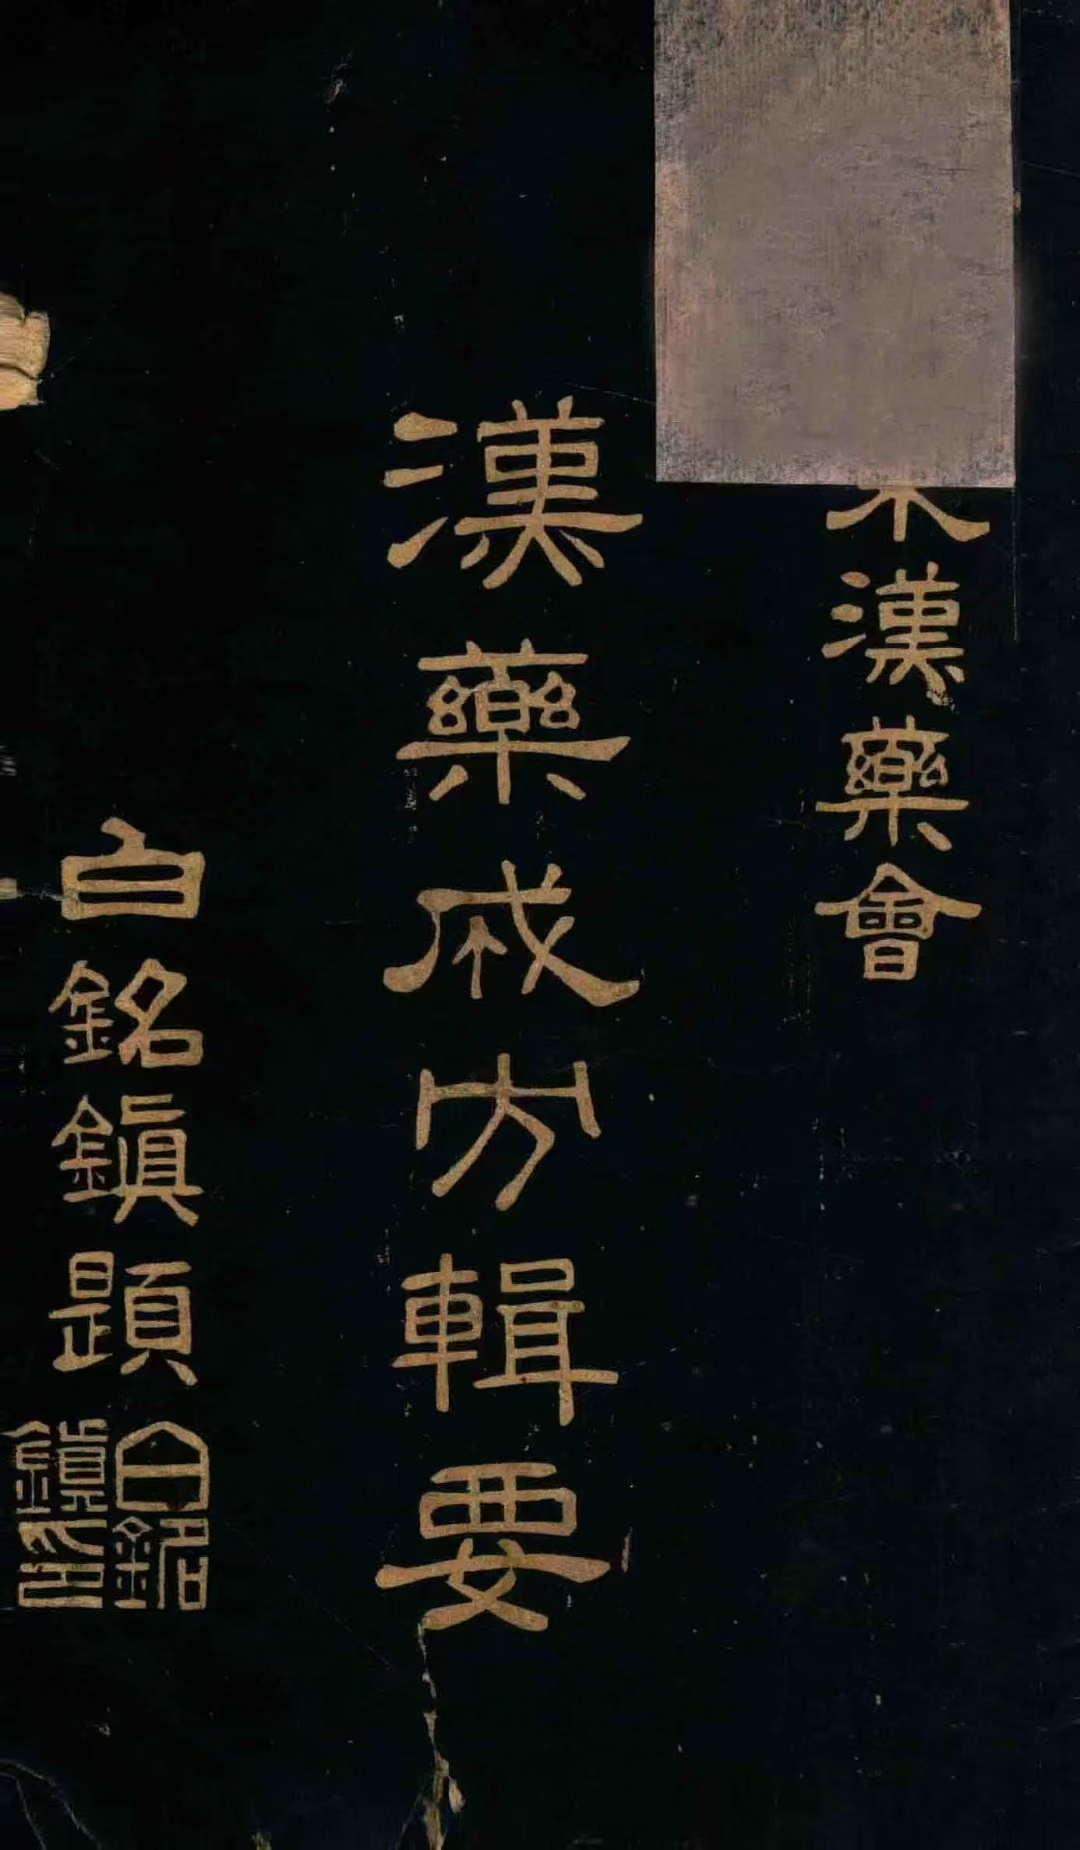 漢藥會
漢藥成方輯要
白銘鎮題
白銘鎮印